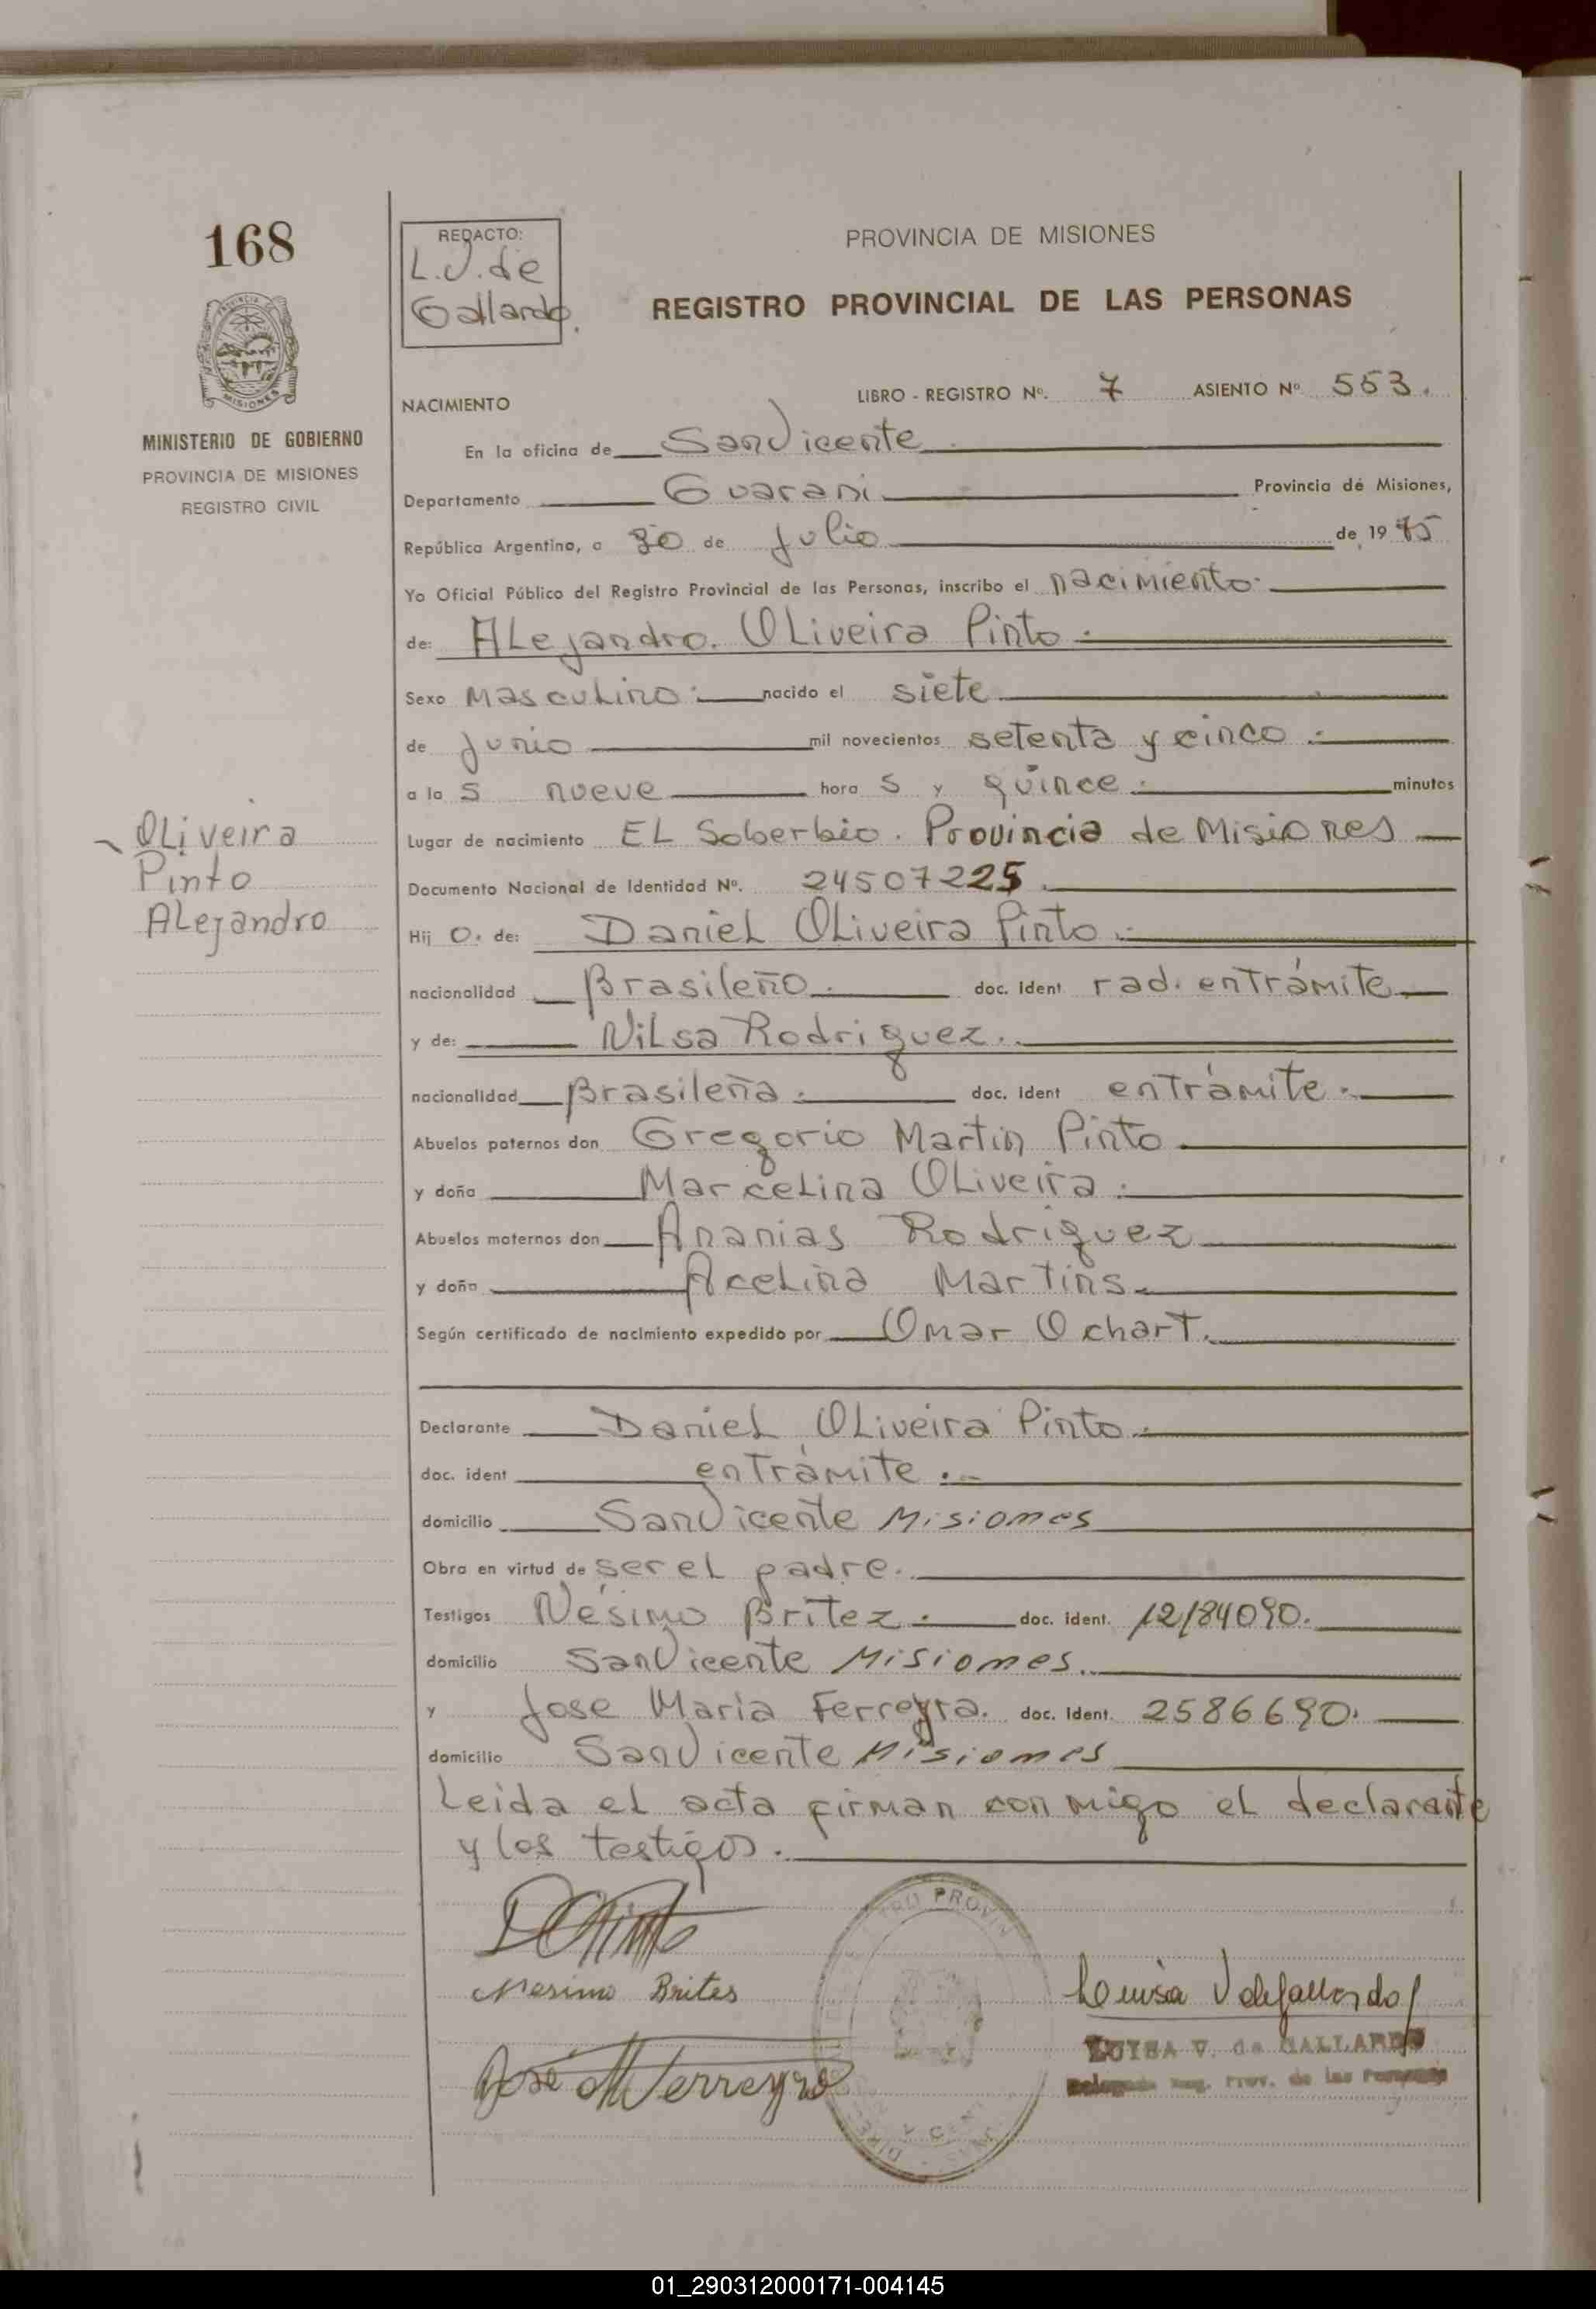 168
REDACTO:
L.V. de
Gallardo.
PROVINCIA DE MISIONES
REGISTRO PROVINCIAL DE LAS PERSONAS
MISIONES
MINISTERIO DE GOBIERNO
PROVINCIA DE MISIONES
REGISTRO CIVIL
NACIMIENTO
LIBRO - REGISTRO Nº. 7 ASIENTO Nº 553.
En la oficina de San Vicente.
Departamento Guarani Provincia de Misiones,
República Argentina, a 30 de Julio de 1975
Yo Oficial Público del Registro Provincial de las Personas, inscribo el nacimiento.
de: Alejandro. Oliveira Pinto.
Sexo Masculino. nacido el siete
de Junio mil novecientos setenta y cinco.
a la s nueve hora s y quince. minutos
Lugar de nacimiento El Soberbio. Provincia de Misiones
Documento Nacional de Identidad Nº. 24507225.
Oliveira
Pinto
Alejandro
Hij o. de: Daniel Oliveira Pinto.
nacionalidad Brasileño. doc. Ident rad. entrámite
y de: Nilsa Rodriguez.
nacionalidad Brasileña. doc. ident entrámite.
Abuelos paternos don Gregorio Martin Pinto
y doña Marcelina Oliveira.
Abuelos maternos don Ananias Rodriguez
y doña Acelina Martins.
Según certificado de nacimiento expedido por Omar Ochart.
Declarante Daniel Oliveira Pinto.
doc. ident entrámite.
domicilio San Vicente Misiones
Obra en virtud de ser el padre.
Testigos Nésimo Britez. doc. ident. 12184090.
domicilio San Vicente Misiones.
y Jose Maria Ferreyra. doc. Ident. 2586690.
domicilio San Vicente Misiones
Leida el acta firman con migo el declarante
y los testigos.
Nesimo Brites
Luisa V de Gallardo
LUISA V. de GALLARDO
Delegada Reg. Prov. de las Personas
José M Ferreyra
01_290312000171-004145